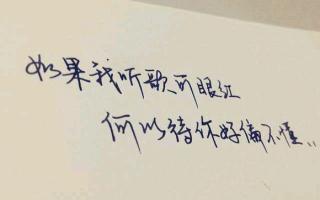 如果我听歌可眼红
何以待你好偏不懂..